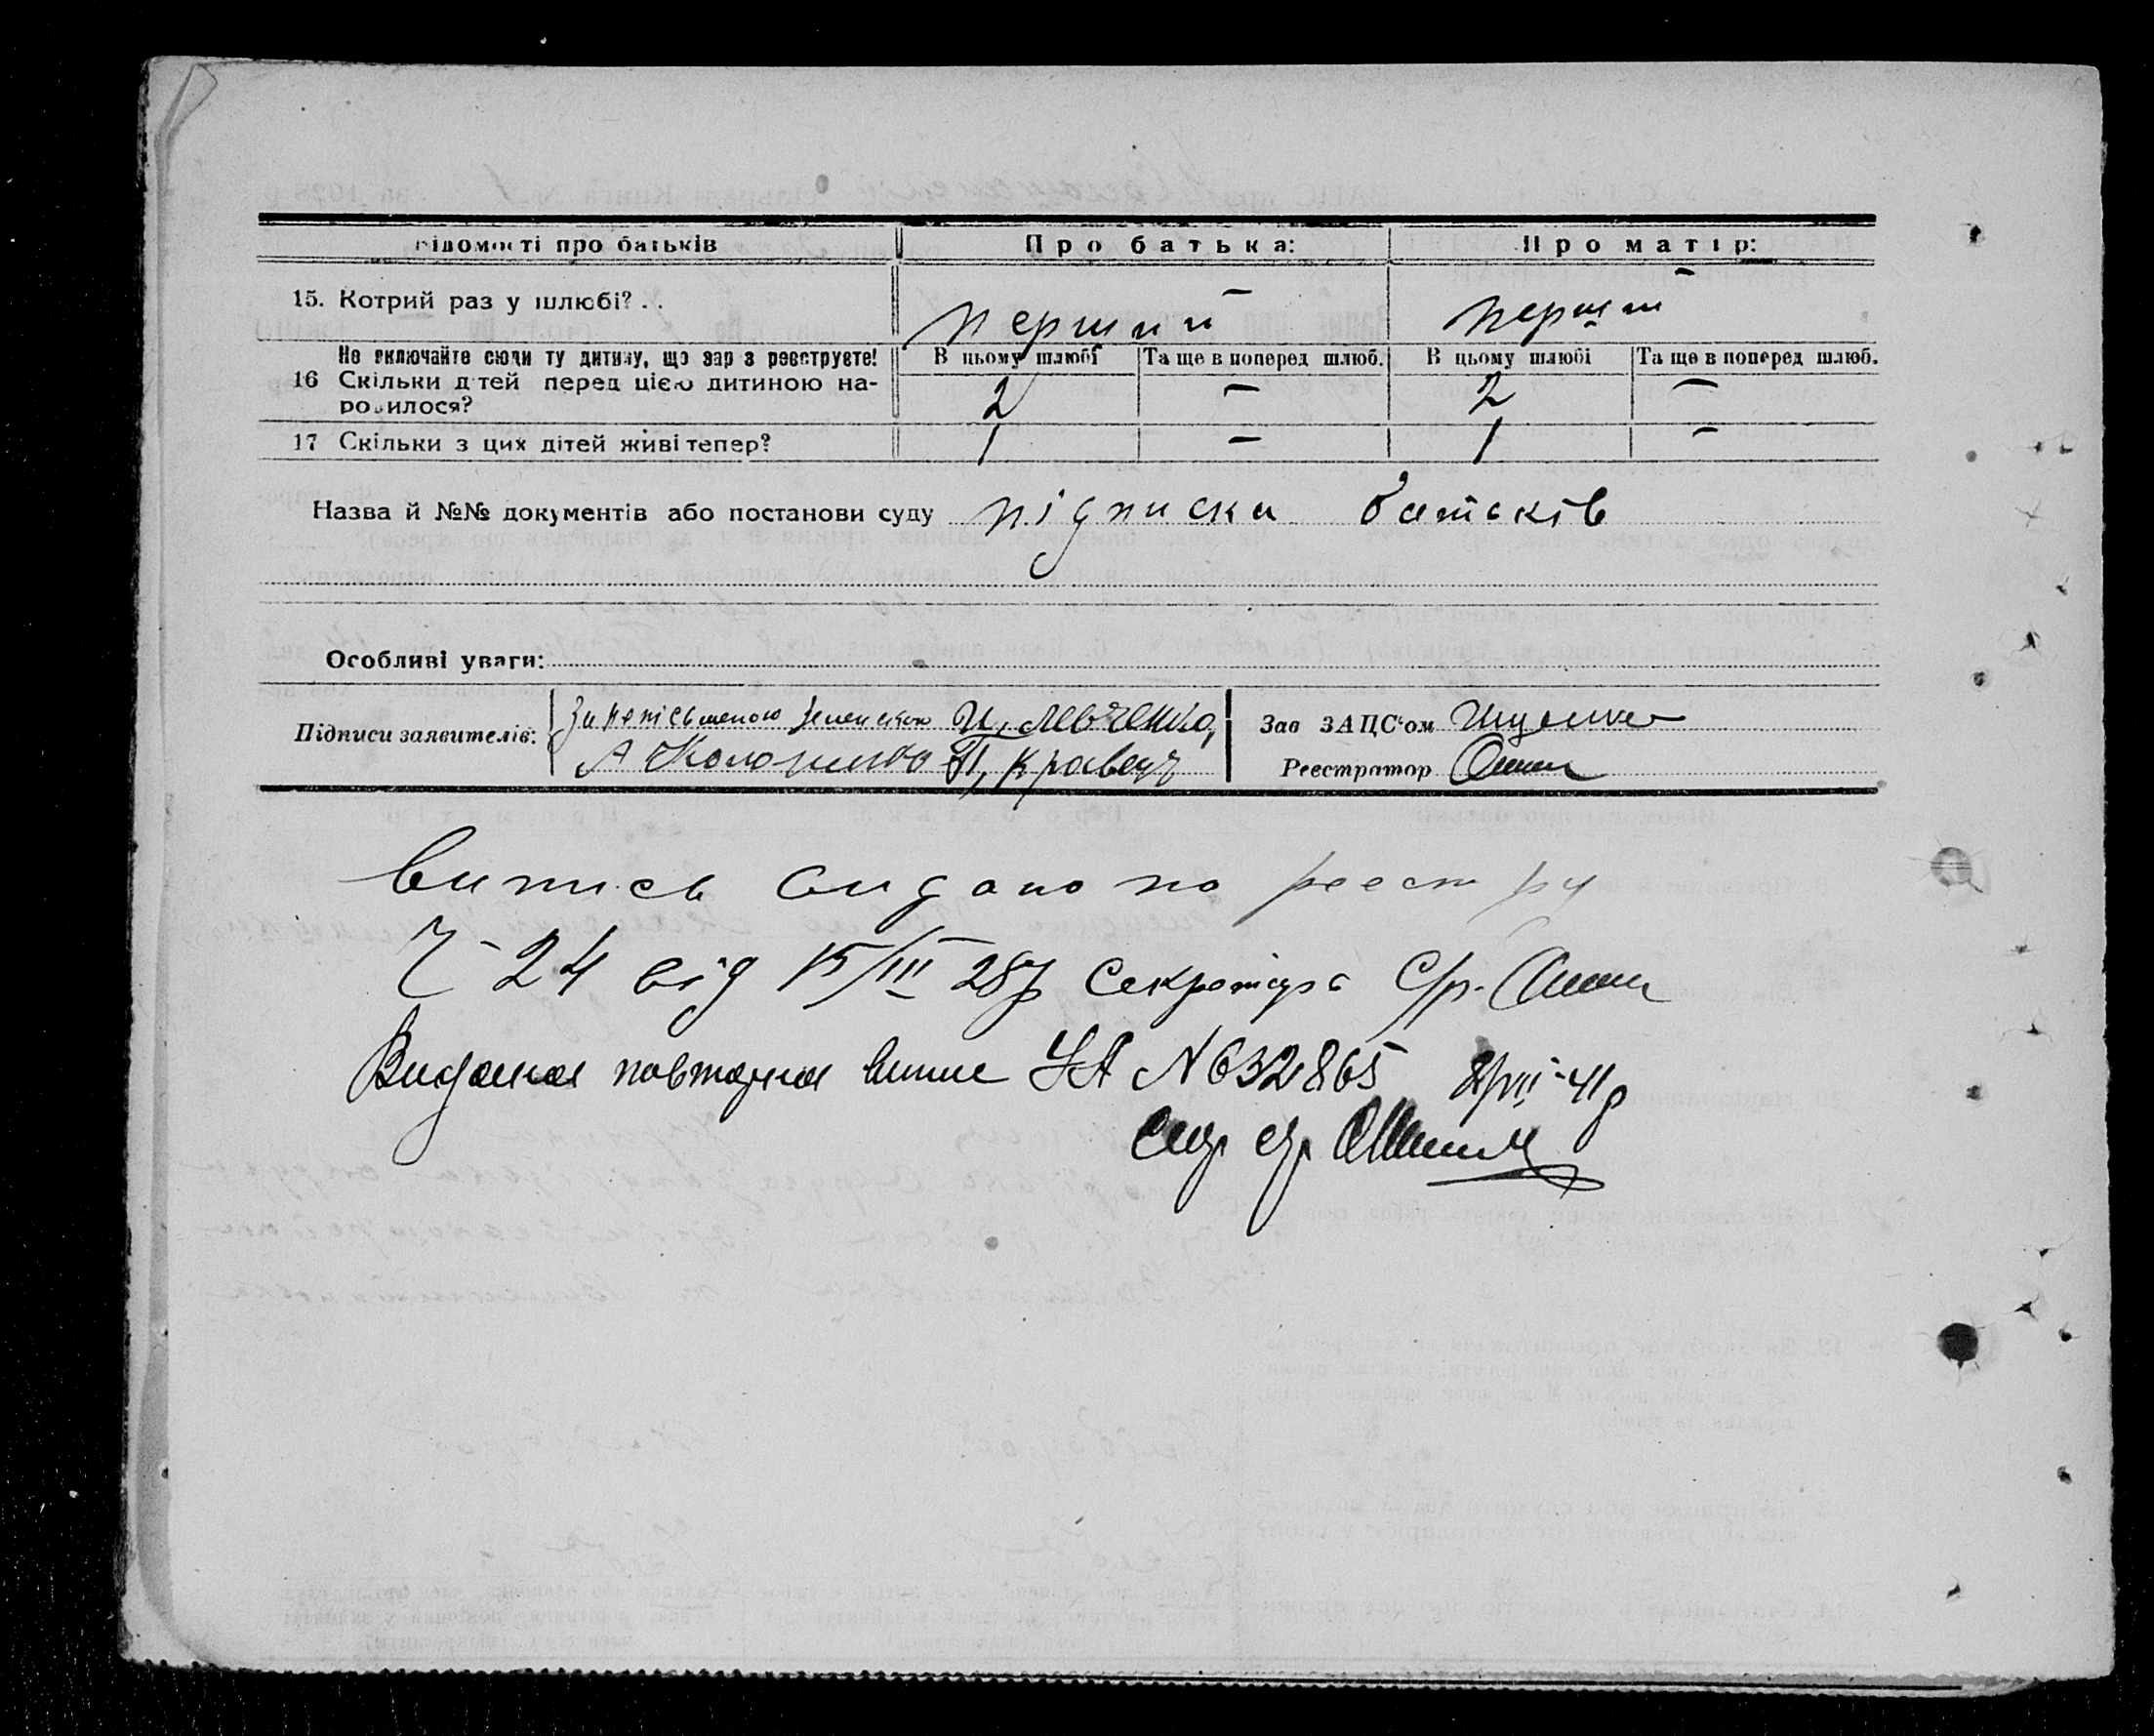 Відомості про батьків Про батька: Про матір:
15. Котрий раз у шлюбі? . . перший перший
Не включайте сюди ту дитину, що зараз реєструєте! В цьому шлюбі Та ще в поперед шлюб. В цьому шлюбі Та ще в поперед шлюб.
16 Скільки дітей перед цією дитиною на-
родилося? 2 — 2 —
17 Скільки з цих дітей живі тепер? 1 — 1 —
Назва й №№ документів або постанови суду підписка батьків
Особливі уваги:
Підписи заявителів: За неписьменою И, Левченко,
А Коломиєць П, Кравець
Зав ЗАЦС'ом
Реєстратор
Випись видано по реестру
Ч-24 від 15/III 28р Секретарь С/р.
Видана повторна випис УА N 632865 2/VII-41р
Секр с/р